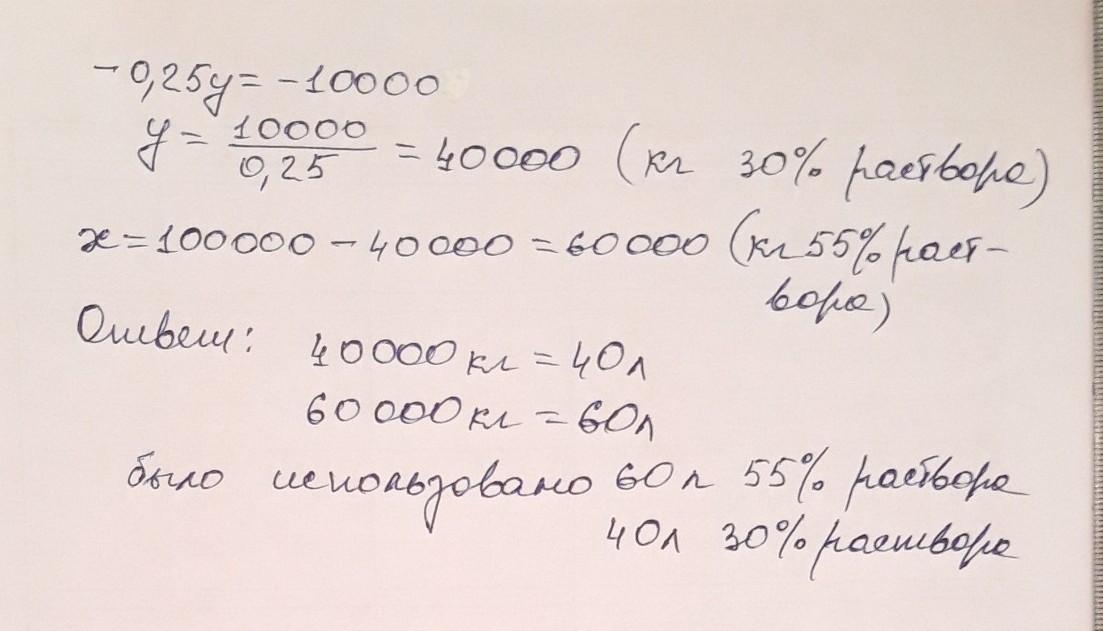 -0,25y = -10000
y = 10000/0,25 = 40000 (кг 30% раствора)
x = 100000 - 40000 = 60000 (кг 55% раст-
вора)
Ответ:
40000 кг = 40л
60000 кг = 60л
было использовано 60л 55% раствора
40л 30% раствора